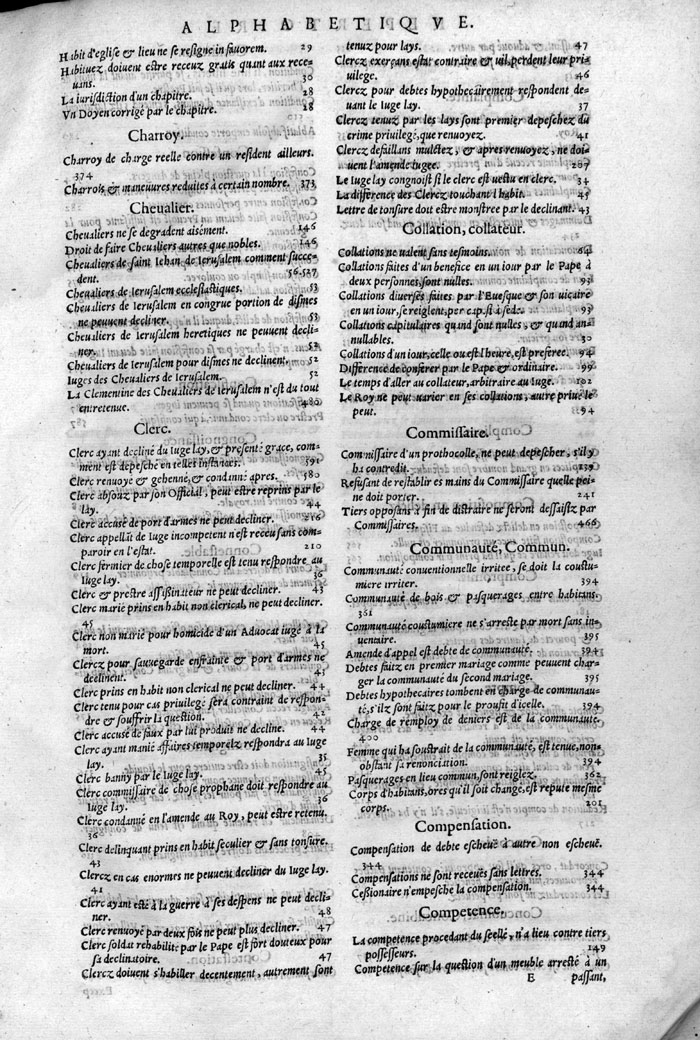 ALPHABETIQVE.
Habit d'eglise & lieu ne se resigne in fauorem. 29
Habituez doiuent estre receuz gratis quant aux rece-
uans. 30
La iurisdiction d'un chapitre. 28
Vn Doyen corrigé par le chapitre. 28
Charroy.
Charroy de charge reelle contre un resident ailleurs.
374
Charrois & manœuures reduites à certain nombre. 373
Cheualier.
Cheualiers ne se degradent aisément. 146
Droit de faire Cheualiers autres que nobles. 146
Cheualiers de saint Iehan de Ierusalem comment succe-
dent. 56.527
Cheualiers de Ierusalem ecclesiastiques. 53
Cheualiers de Ierusalem en congrue portion de dismes
ne peuuent decliner. 53
Cheualiers de Ierusalem heretiques ne peuuent decli-
ner. 52
Cheualiers de Ierusalem pour dismes ne declinent. 52
Iuges des Cheualiers de Ierusalem. 52
La Clementine des Cheualiers de Ierusalem n'est du tout
entretenue. 480
Clerc.
Clerc ayant decliné du Iuge lay, & presenté grace, com-
ment est depesché en telles instances. 591
Clerc renuoyé & gehenné, & condanné apres. 580
Clerc absouz par son Official, peut estre reprins par le
lay. 44
Clerc accusé de port d'armes ne peut decliner. 216
Clerc appellãt de Iuge incompetent n'est receu sans com-
paroir en l'estat. 210
Clerc fermier de chose temporelle est tenu respondre au
Iuge lay. 36
Clerc & prestre assassinateur ne peut decliner. 43
Clerc marié prins en habit non clerical, ne peut decliner.
45
Clerc non marié pour homicide d'un Aduocat iugé à la
mort. 45
Clercz pour sauuegarde enfrainte & port d'armes ne
declinent. 43
Clerc prins en habit non clerical ne peut decliner. 44
Clerc tenu pour cas priuilegé sera contraint de respon-
dre & souffrir la question. 42
Clerc accusé de faux par luy produit ne decline. 44
Clerc ayant manié affaires temporelz respondra au Iuge
lay. 35
Clerc banny par le Iuge lay. 45
Clerc commissaire de chose prophane doit respondre au
Iuge lay. 36
Clerc condamné en l'amende au Roy, peut estre retenu.
36
Clerc delinquant prins en habit seculier & sans tonsure.
43
Clercz en cas enormes ne peuuent decliner du Iuge lay.
41
Clerc ayant esté à la guerre à ses despens ne peut decli-
ner. 48
Clerc renuoyé par deux fois ne peut plus decliner. 47
Clerc soldat rehabilité par le Pape est fort douteux pour
sa declinatoire. 47
Clercz doiuent s'habiller decentement, autrement sont
tenuz pour lays. 47
Clercz exerçans estat contraire & uil, perdent leur pri-
uilege. 46
Clercz pour debtes hypothecairement respondent de-
uant le Iuge lay. 37
Clercz tenuz par les lays sont premier depeschez du
crime priuilegé, que renuoyez. 41
Clercz defaillans mulctez, & apres renuoyez, ne doi-
uent l'amende iugee. 207
Le Iuge lay congnoist si le clerc est uestu en clerc. 34
La difference des Clercz touchant l'habit. 45
Lettre de tonsure doit estre monstree par le declinant. 43
Collation, collateur.
Collations ne valent sans tesmoins. 64
Collations faites d'un benefice en un iour par le Pape à
deux personnes, sont nulles. 93
Collations diuerses faites par l'Euesque & son uicaire
en un iour, se reiglent, per cap. si à sede. 93
Collations capitulaires quand sont nulles, & quand an-
nullables. 30
Collations d'un iour, celle ou est l'heure, est preferee. 94
Difference de conferer par le Pape & ordinaire. 99
Le temps d'aller au collateur, arbitraire au iuge. 102
Le Roy ne peut uarier en ses collations, autre prince le
peut. 94
Commissaire.
Commissaire d'un prothocolle, ne peut depescher, s'il y
ha contredit. 239
Refusant de restablir es mains du Commissaire quelle pei-
ne doit porter. 241
Tiers opposans à fin de distraire ne seront dessaisiz par
Commissaires. 466
Communauté, Commun.
Communauté conuentionnelle irritee, se doit la coustu-
miere irriter. 394
Communauté de bois & pasquerages entre habitans.
361
Communauté coustumiere ne s'arreste par mort sans in-
uentaire. 395
Amende d'appel est debte de communauté. 394
Debtes faitz en premier mariage comme peuuent char-
ger la communauté du second mariage. 395
Debtes hypothecaires tombent en charge de communau-
té, s'ilz sont faitz pour le proufit d'icelle. 394
Charge de remploy de deniers est de la communauté.
400
Femme qui ha soustrait de la communauté, est tenue, non-
obstant sa renonciation. 394
Pasquerages en lieu commun, sont reiglez. 362
Corps d'habitans, ores qu'il soit changé, est reputé mesme
corps. 201
Compensation.
Compensation de debte escheuë à autre non escheuë.
344
Compensations ne sont receuës sans lettres. 344
Cessionaire n'empesche la compensation. 344
Competence.
La competence procedant du seellé, n'a lieu contre tiers
possesseurs. 149
Competence sur la question d'un meuble arresté à un
E passant,